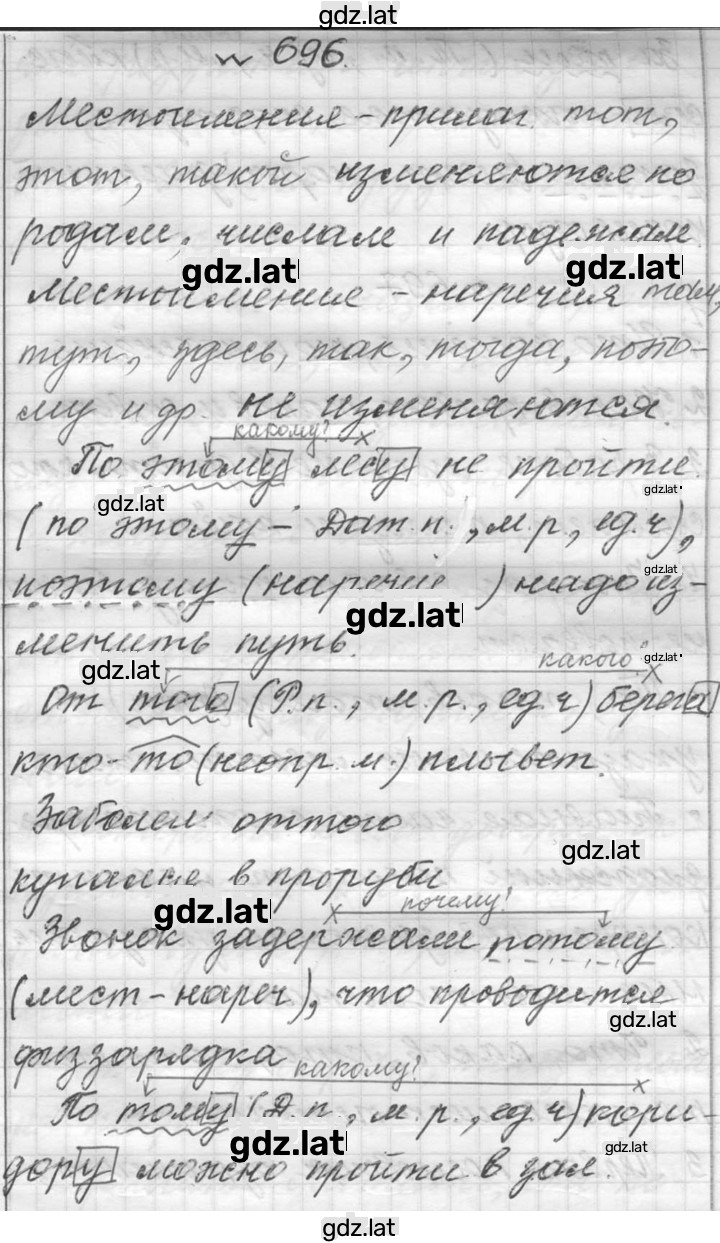 gdz.lat
№ 696.
Местоимения - прилаг. тот,
этот, такой изменяются по
родам, числам и падежам.
gdz.lat
gdz.lat
Местоимение - наречия там,
тут, здесь, так, тогда, пото-
му и др. не изменяются.
какому?
По этому лесу не пройти.
gdz.lat
gdz.lat
(по этому - Дат.п., м.р., ед.ч),
gdz.lat
поэтому (наречие ) надо из-
gdz.lat
менить путь.
gdz.lat
какого
gdz.lat
От того (Р.п., м.р., ед.ч) берега
кто-то (неопр. м.) плывет.
Заболел оттого
gdz.lat
купалке в проруби
gdz.lat
почему?
Звонок задержали потому
(мест-нареч), что проводится
gdz.lat
физзарядка
какому?
По тому (Д.п., м.р., ед.ч) кори-
gdz.lat
gdz.lat
дору можно пройти в зал.
gdz.lat